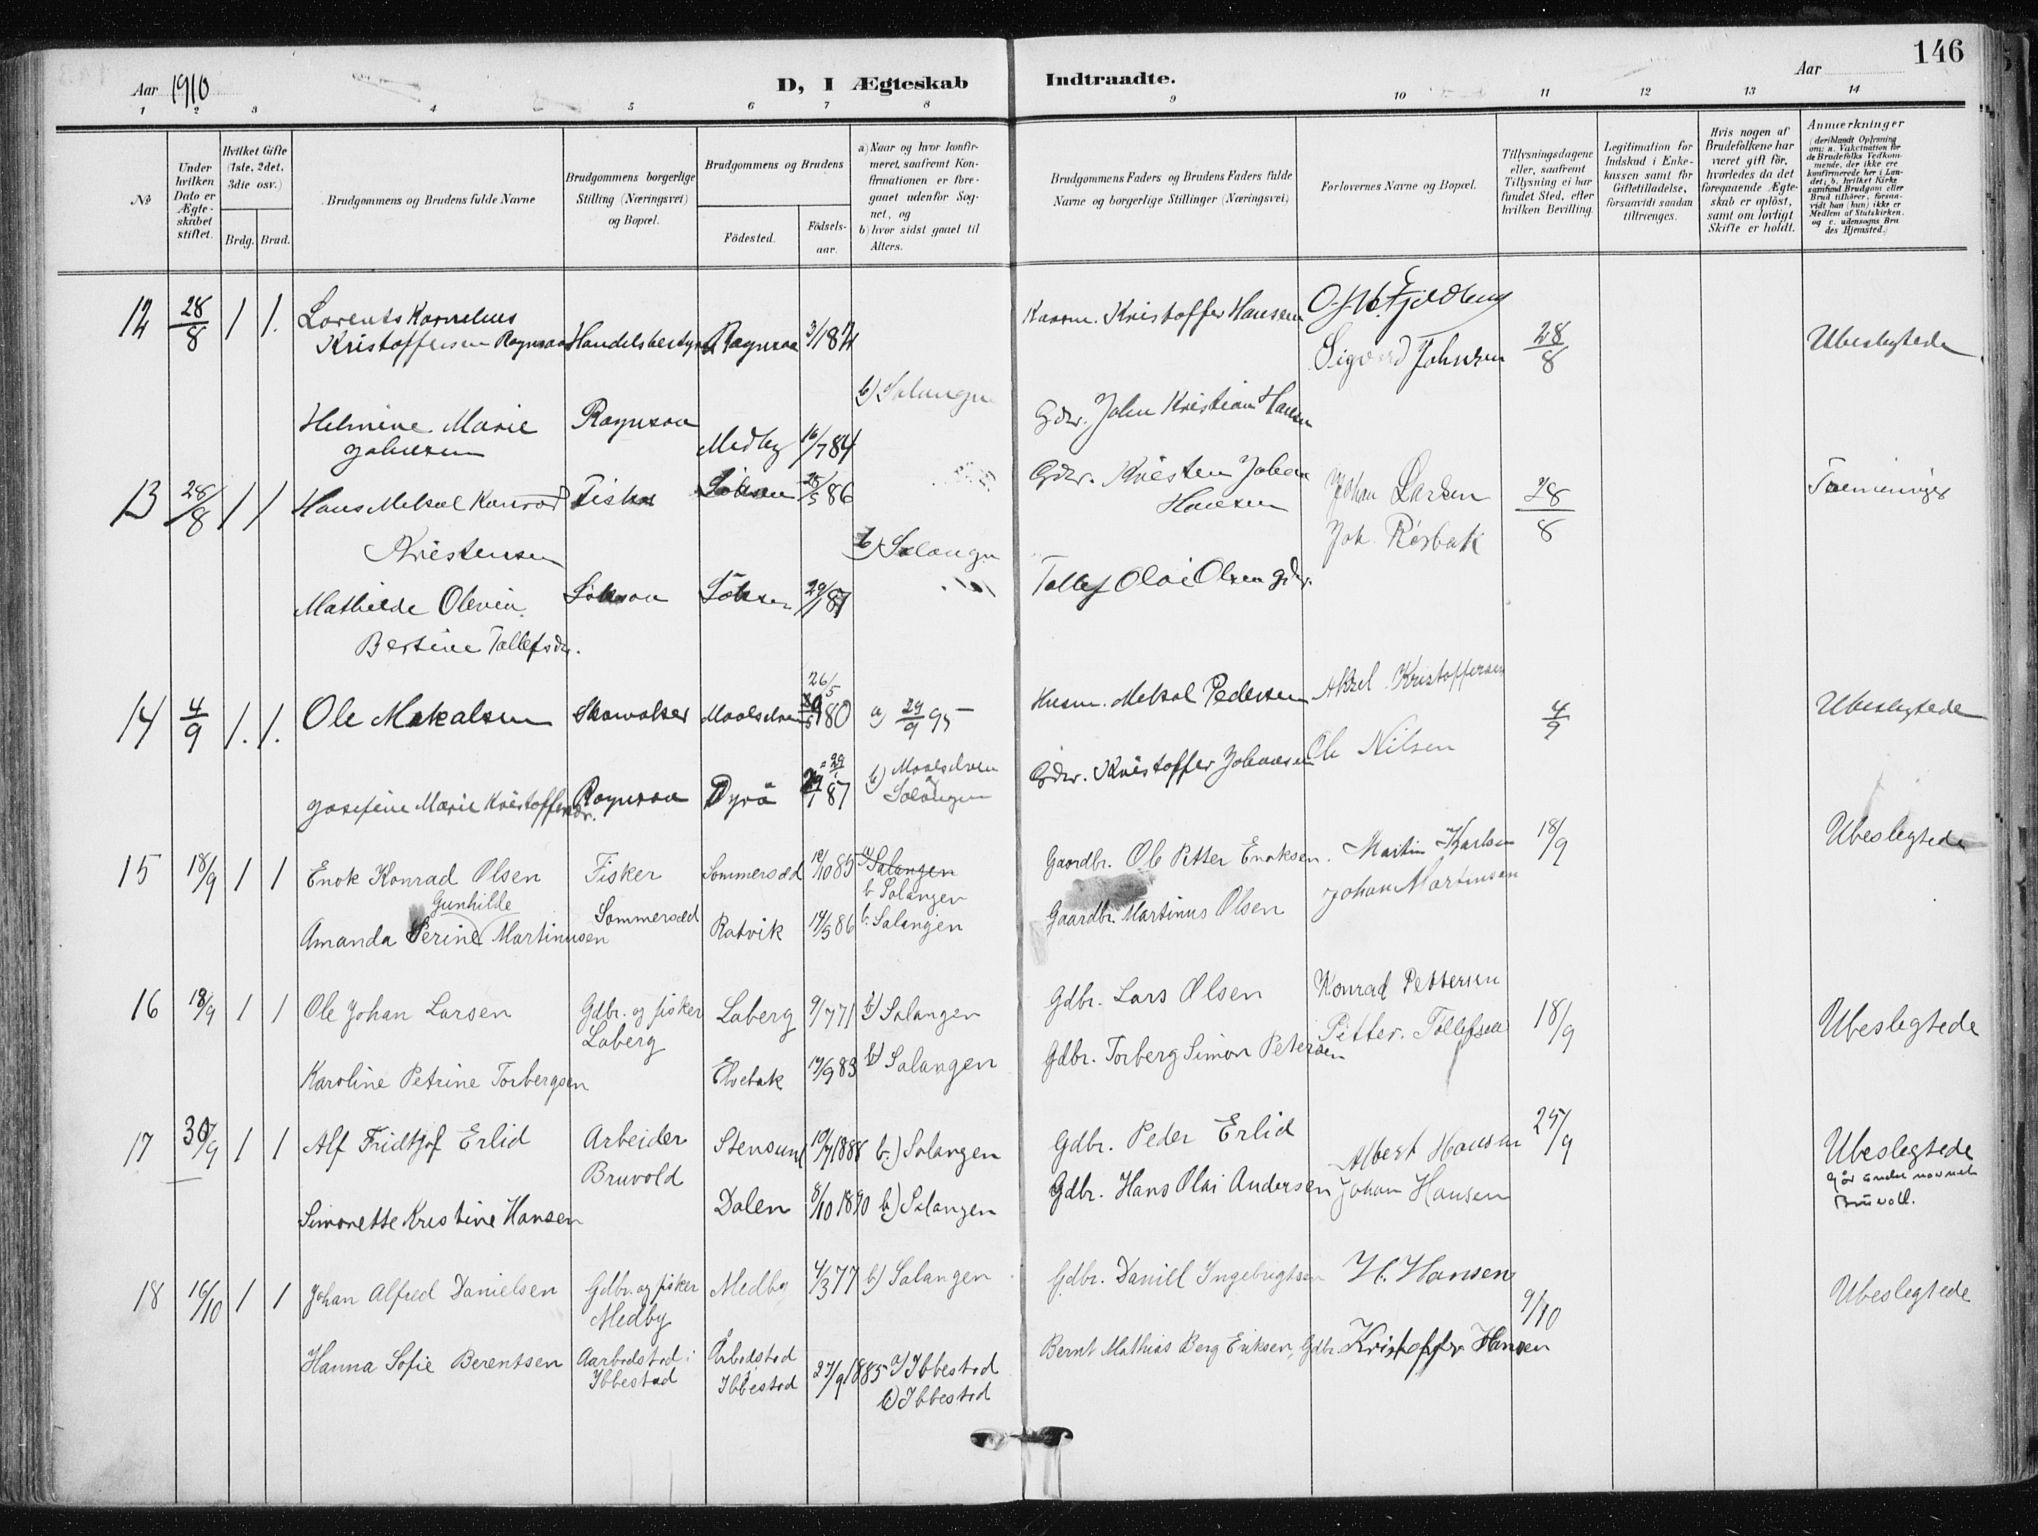 146
Aar 1910
D, I Ægteskab Indtraadte.
Aar
1 2 3 4 5 6 7 8 9 10 11 12 13 14
No
Under hvilken Dato er Ægteskabet stiftet.
Hvilket Gifte (1ste, 2det, 3die osv.)
Brdg. Brud.
Brudgommens og Brudens fulde Navne
Brudgommens borgerlige Stilling (Næringsvei) og Bopæl.
Brudgommens og Brudens
Födested.
Födselsaar.
a) Naar og hvor konfirmeret, saafremt Konfirmationen er foregaaet udenfor Sognet, og
b) hvor sidst gaaet til Alters.
Brudgommens Faders og Brudens Faders fulde Navne og borgerlige Stillinger (Næringsvei)
Forlovernes Navne og Bopæl.
Tillysningsdagene eller, saafremt Tillysning ei har fundet Sted, efter hvilken Bevilling.
Legitimation for Indskud i Enkekassen samt for Giftetilladelse, forsaavidt saadan tiltrænges.
Hvis nogen af Brudefolkene har været gift för, hvorledes da det foregaaende Ægteskab er oplöst, samt om lovligt Skifte er holdt.
Anmærkninger
(deriblandt Oplysning om: a. Vakcination for de Brudefolks Vedkommende, der ikke ere konfirmerede her i Landet; b. hvilket Kirkesamfund Brudgom eller Brud tilhörer, forsaavidt han (hun) ikke er Medlem af Statskirken, og c. udensogns Brudes Hjemsted.)
12 28/8 1 1. Lorents Kornelius
Kristoffersen Røgnsaa Handelsbestyr Røgnsaa 3/1 84 Kristoffer Hansen
Sigvard Johnsen 28/8 Ubeslegtede
b) Salangen
Helmine Marie Johnsen Røgnsaa Medby 16/7 84 Gdbr. John Kristian Hansen
13 28/8 1 1 Hans Meksal Konrad Fisker 86 Gdbr. Kristen Johan Hansen Johan Larsen 28/8
Kristensen b) Salangen Joh. Rørbak
Mathilde Olevia 29/1 87 Tollef Olai Olsen gdbr.
Bertine Tollefsdr.
14 4/9 1. 1. Ole Mekalsen Maalselven 26/5 80 a) 29/9 95 Husm. Meksal Pedersen Aksel Kristoffersen 4/9 Ubeslegtede
Josefine Marie Kristoffersdr. Røgnsaa Dyrö 29/1 87 b) Maalselven og Salangen Gdbr. Kristoffer Johansen Ole Nilsen
15 18/9 1 1 Enok Konrad Olsen Fisker Sommersæd 12/10 85 a) Salangen
b. Salangen Gaardbr. Ole Petter Enoksen. Martin Karlsen 18/9 Ubeslegtede
Gunhilde
Amanda Serine Martinusen Sommersæd Rotvik 14/5 86 b. Salangen Gaardbr. Martinus Olsen Johan Martinsen
16 18/9 1 1 Ole Johan Larsen Gdbr. og fisker Laberg Laberg 9/7 71 b) Salangen Gdbr. Lars Olsen Konrad Pettersen 18/9 Ubeslegtede
Karoline Petrine Torbergsen Elvebak 17/9 83 b) Salangen Gdbr. Torberg Simon Petersen Petter. Tollefsen
17 30/9 1 1 Alf Fridtjof Erlid Arbeider Bruvold Stensund 10/7 1888 b.) Salangen Gdbr. Peder Erlid Albert Hansen 25/9 Ubeslegtede
Bruvoll.
Simonette Kristine Hansen Dalen 8/10 1890 b) Salangen Gdbr. Hans Olai Andersen Johan Hansen
18 16/10 1 1 Johan Alfred Danielsen Gdbr. og fisker Medby Medby 4/3 77 b) Salangen Gdbr. Daniel Ingebrigtsen H. Hansen 9/10 Ubeslegtede
Hanna Sofie Berentsen Aarbodstad i Ibbestad Årbodstad Ibbestad 27/9 1885 a) Ibbestad
b) Ibbestad Bernt Mathias Berg Eriksen, Gdbr. Kristoffer Hansen